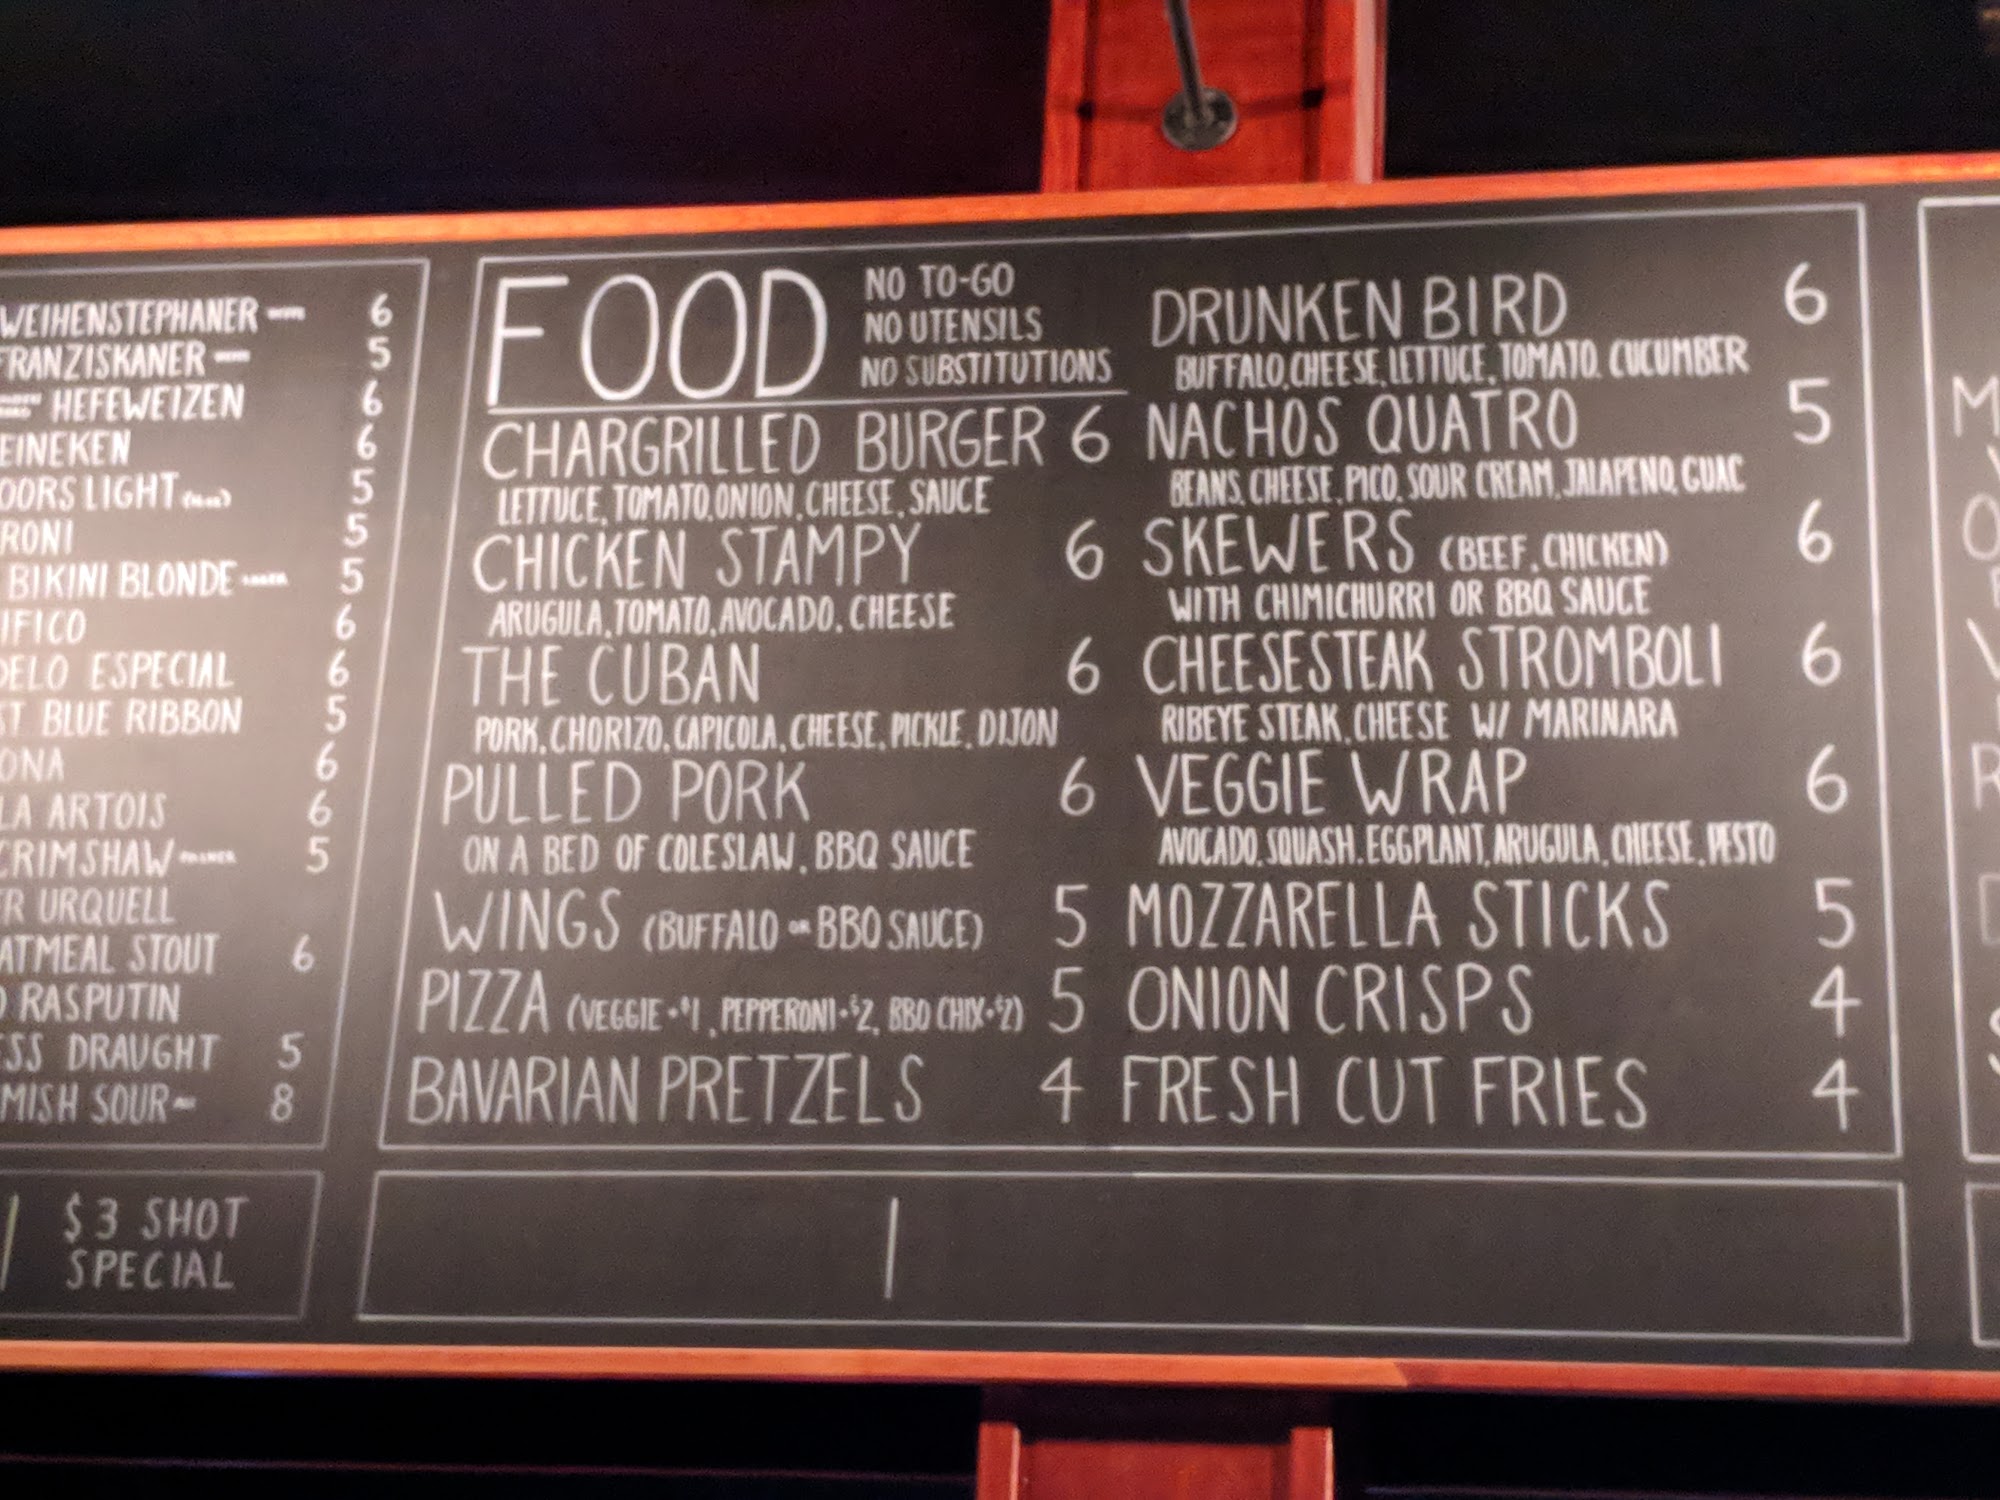 WEIHENSTEPHANER 6
FRANZISKANER 5
HEFEWEIZEN 6
EINEKEN 6
OORS LIGHT 5
RONI 5
BIKINI BLONDE LAGER 5
IFICO 6
DELO ESPECIAL 6
ST BLUE RIBBON 5
ONA 6
LA ARTOIS 6
CRIMSHAW PILSNER 5
R URQUELL
ATMEAL STOUT 6
RASPUTIN
SS DRAUGHT 5
MISH SOUR 8
$3 SHOT
SPECIAL
FOOD
NO TO-GO
NO UTENSILS
NO SUBSTITUTIONS
CHARGRILLED BURGER 6
LETTUCE, TOMATO, ONION, CHEESE, SAUCE
CHICKEN STAMPY 6
ARUGULA, TOMATO, AVOCADO, CHEESE
THE CUBAN 6
PORK, CHORIZO, CAPICOLA, CHEESE, PICKLE, DIJON
PULLED PORK 6
ON A BED OF COLESLAW, BBQ SAUCE
WINGS (BUFFALO OR BBQ SAUCE) 5
PIZZA (VEGGIE +$1, PEPPERONI +$2, BBQ CHIX +$2) 5
BAVARIAN PRETZELS 4
DRUNKEN BIRD 6
BUFFALO, CHEESE, LETTUCE, TOMATO, CUCUMBER
NACHOS QUATRO 5
BEANS, CHEESE, PICO, SOUR CREAM, JALAPENO, GUAC
SKEWERS (BEEF, CHICKEN) 6
WITH CHIMICHURRI OR BBQ SAUCE
CHEESESTEAK STROMBOLI 6
RIBEYE STEAK, CHEESE W/ MARINARA
VEGGIE WRAP 6
AVOCADO, SQUASH, EGGPLANT, ARUGULA, CHEESE, PESTO
MOZZARELLA STICKS 5
ONION CRISPS 4
FRESH CUT FRIES 4